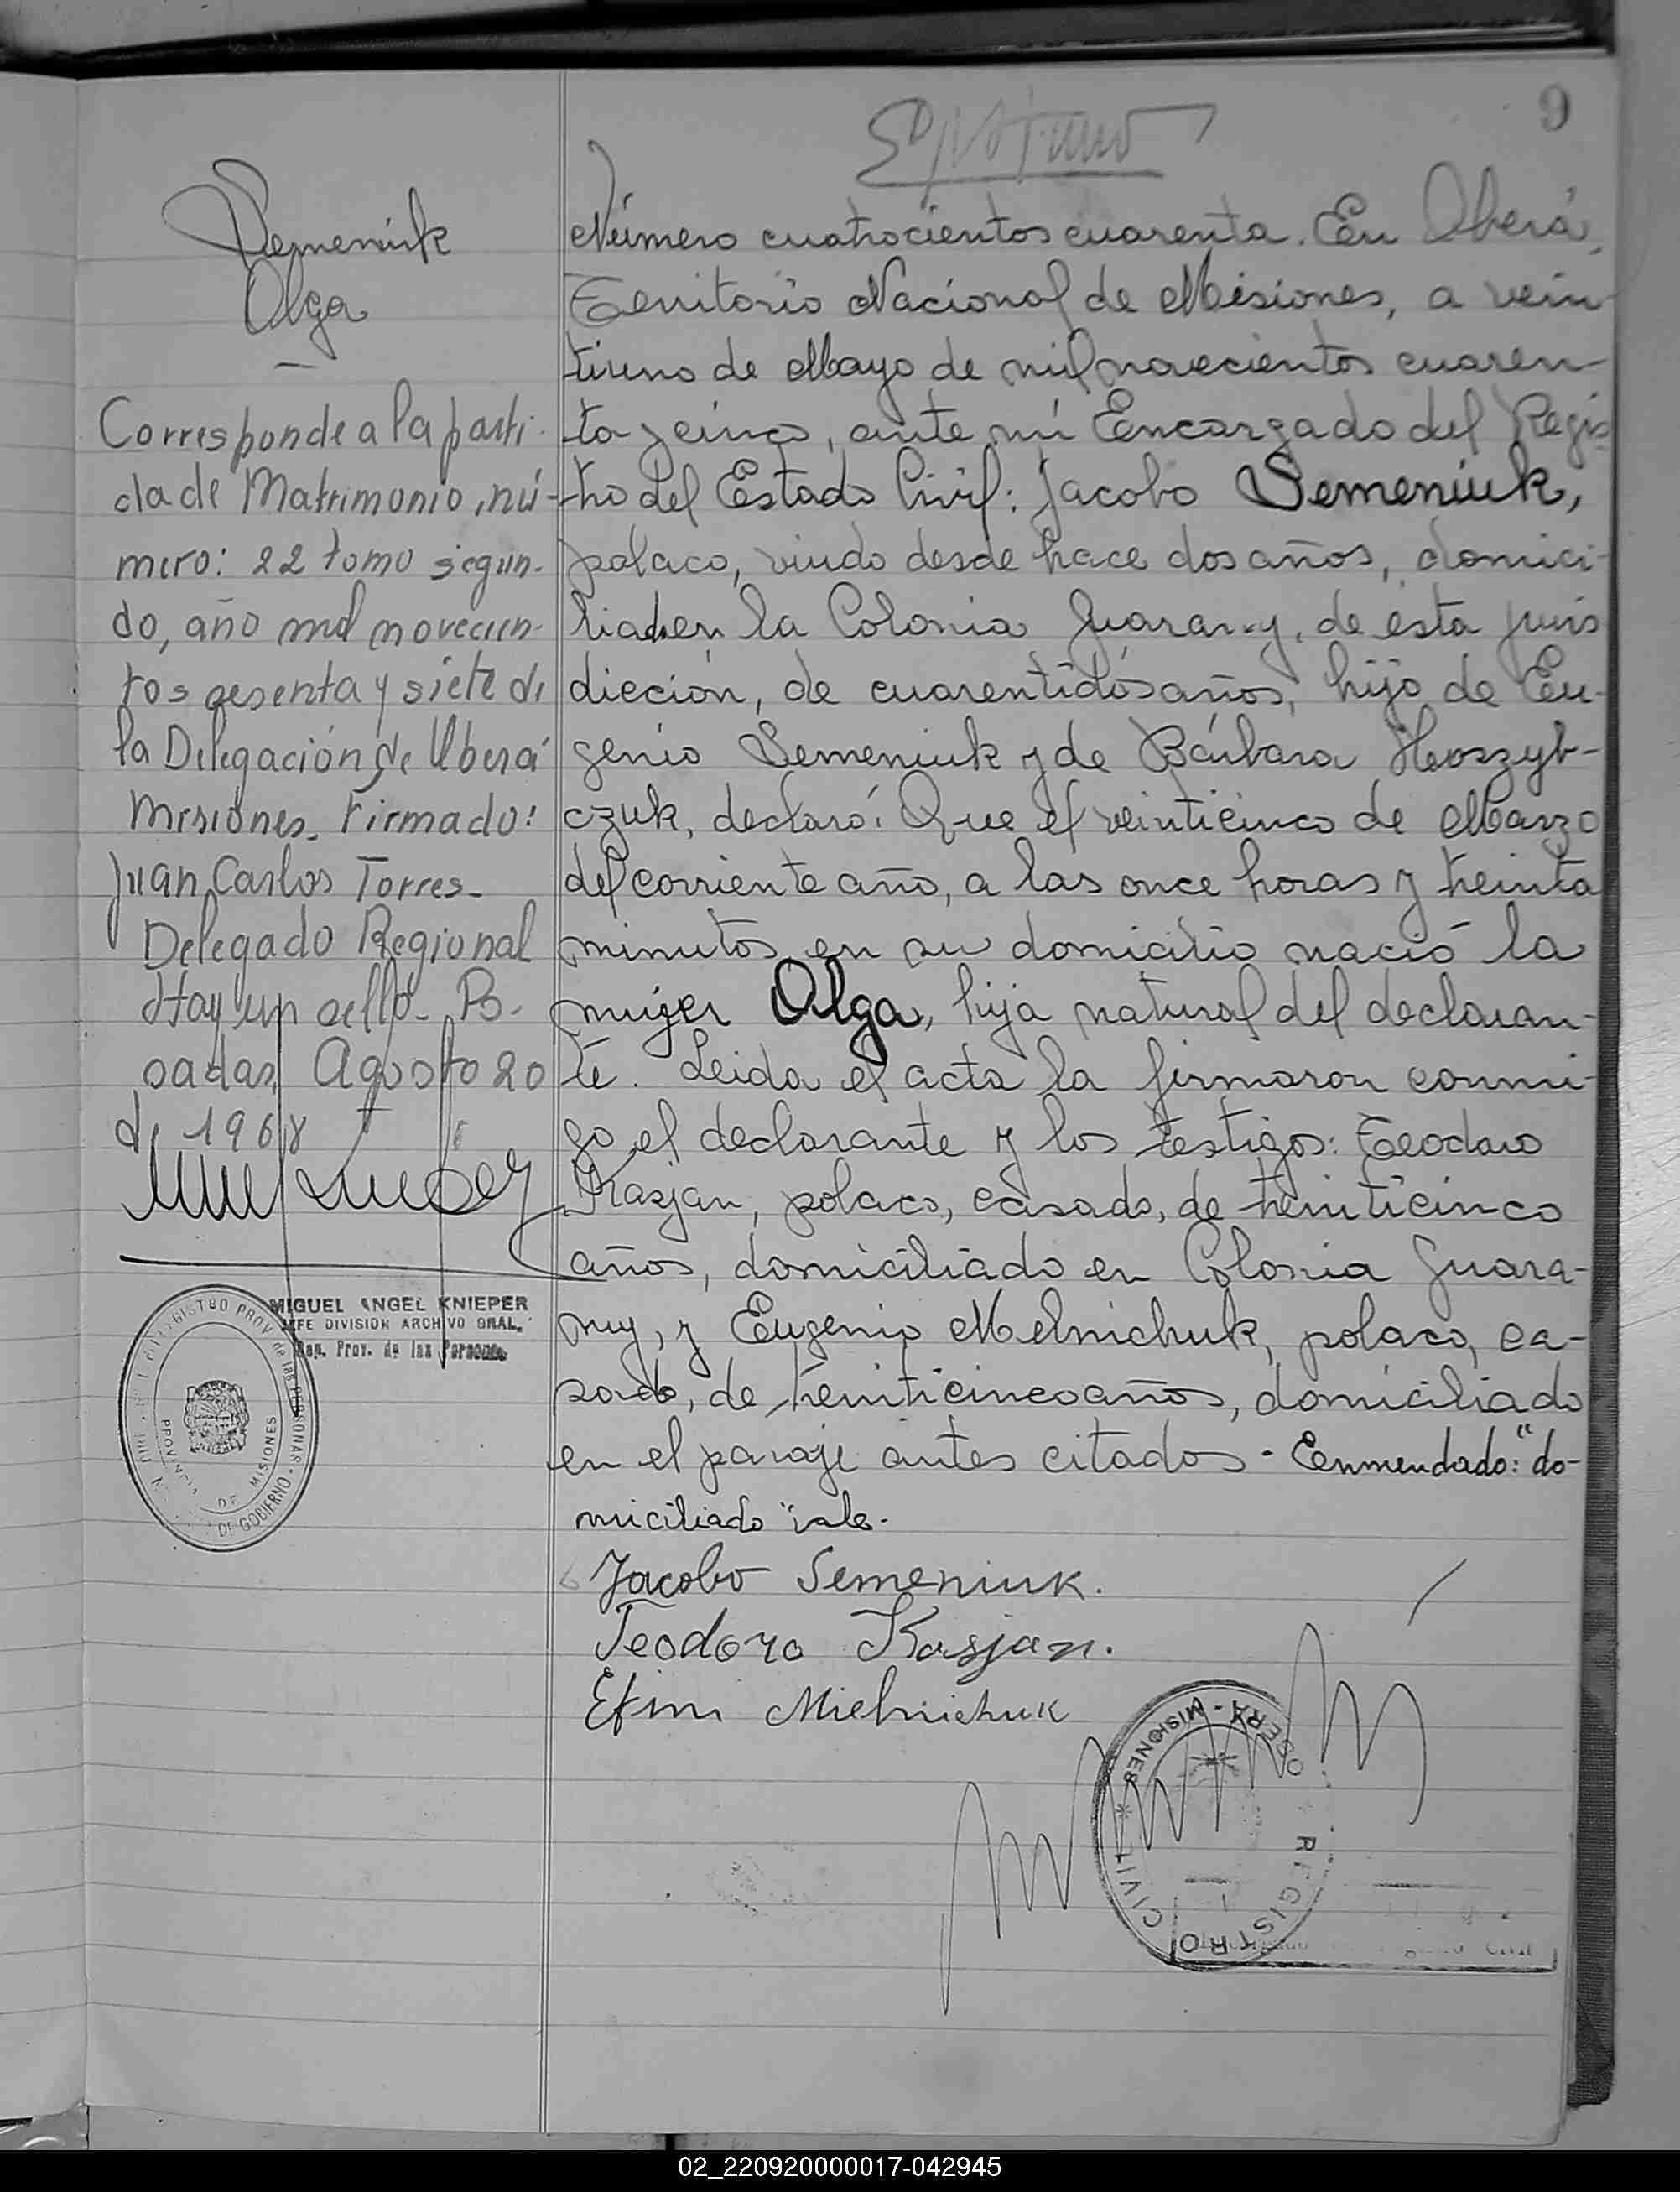 9
Semeniuk
Olga
Corresponde a la parti-
da de Matrimonio, nú-
mero: 22 tomo segun-
do, año mil novecien-
tos sesenta y siete de
la Delegación de Oberá
Misiones. Firmado:
Juan Carlos Torres-
Delegado Regional
Hay un sello- Po-
sadas, Agosto 20
de 1968
MIGUEL ANGEL KNIEPER
JEFE DIVISION ARCHIVO GRAL.
Rep. Prov. de las Personas
PROVINCIA DE MISIONES
DE GOBIERNO
Número cuatrocientos cuarenta. En Oberá,
Territorio Nacional de Misiones, a vein-
tiuno de Mayo de mil novecientos cuaren-
ta y cinco, ante mí Encargado del Regis-
tro del Estado Civil: Jacobo Semeniuk,
polaco, viudo desde hace dos años, domici-
liado en la Colonia Guarany, de ésta juris
dicción, de cuarentidós años, hijo de Eu-
genio Semeniuk y de Bárbara
czuk, declaró: Que el veinticinco de Marzo
del corriente año, a las once horas y treinta
minutos en su domicilio nació la
mujer Olga, hija natural del declaran-
te. Leida el acta la firmaron conmi-
go el declarante y los testigos: Teodoro
Kasjan, polaco, casado, de treinticinco
años, domiciliado en Colonia Guara-
ny, y Eugenio Melnichuk, polaco, ca-
sado, de treinticinco años, domiciliado
en el paraje antes citados - Enmendado: "do-
miciliado" vale.
Jacobo Semeniuk.
Teodoro Kasjan.
Efim Mielnichuk
REGISTRO CIVIL * OBERA - MISIONES
02_220920000017-042945